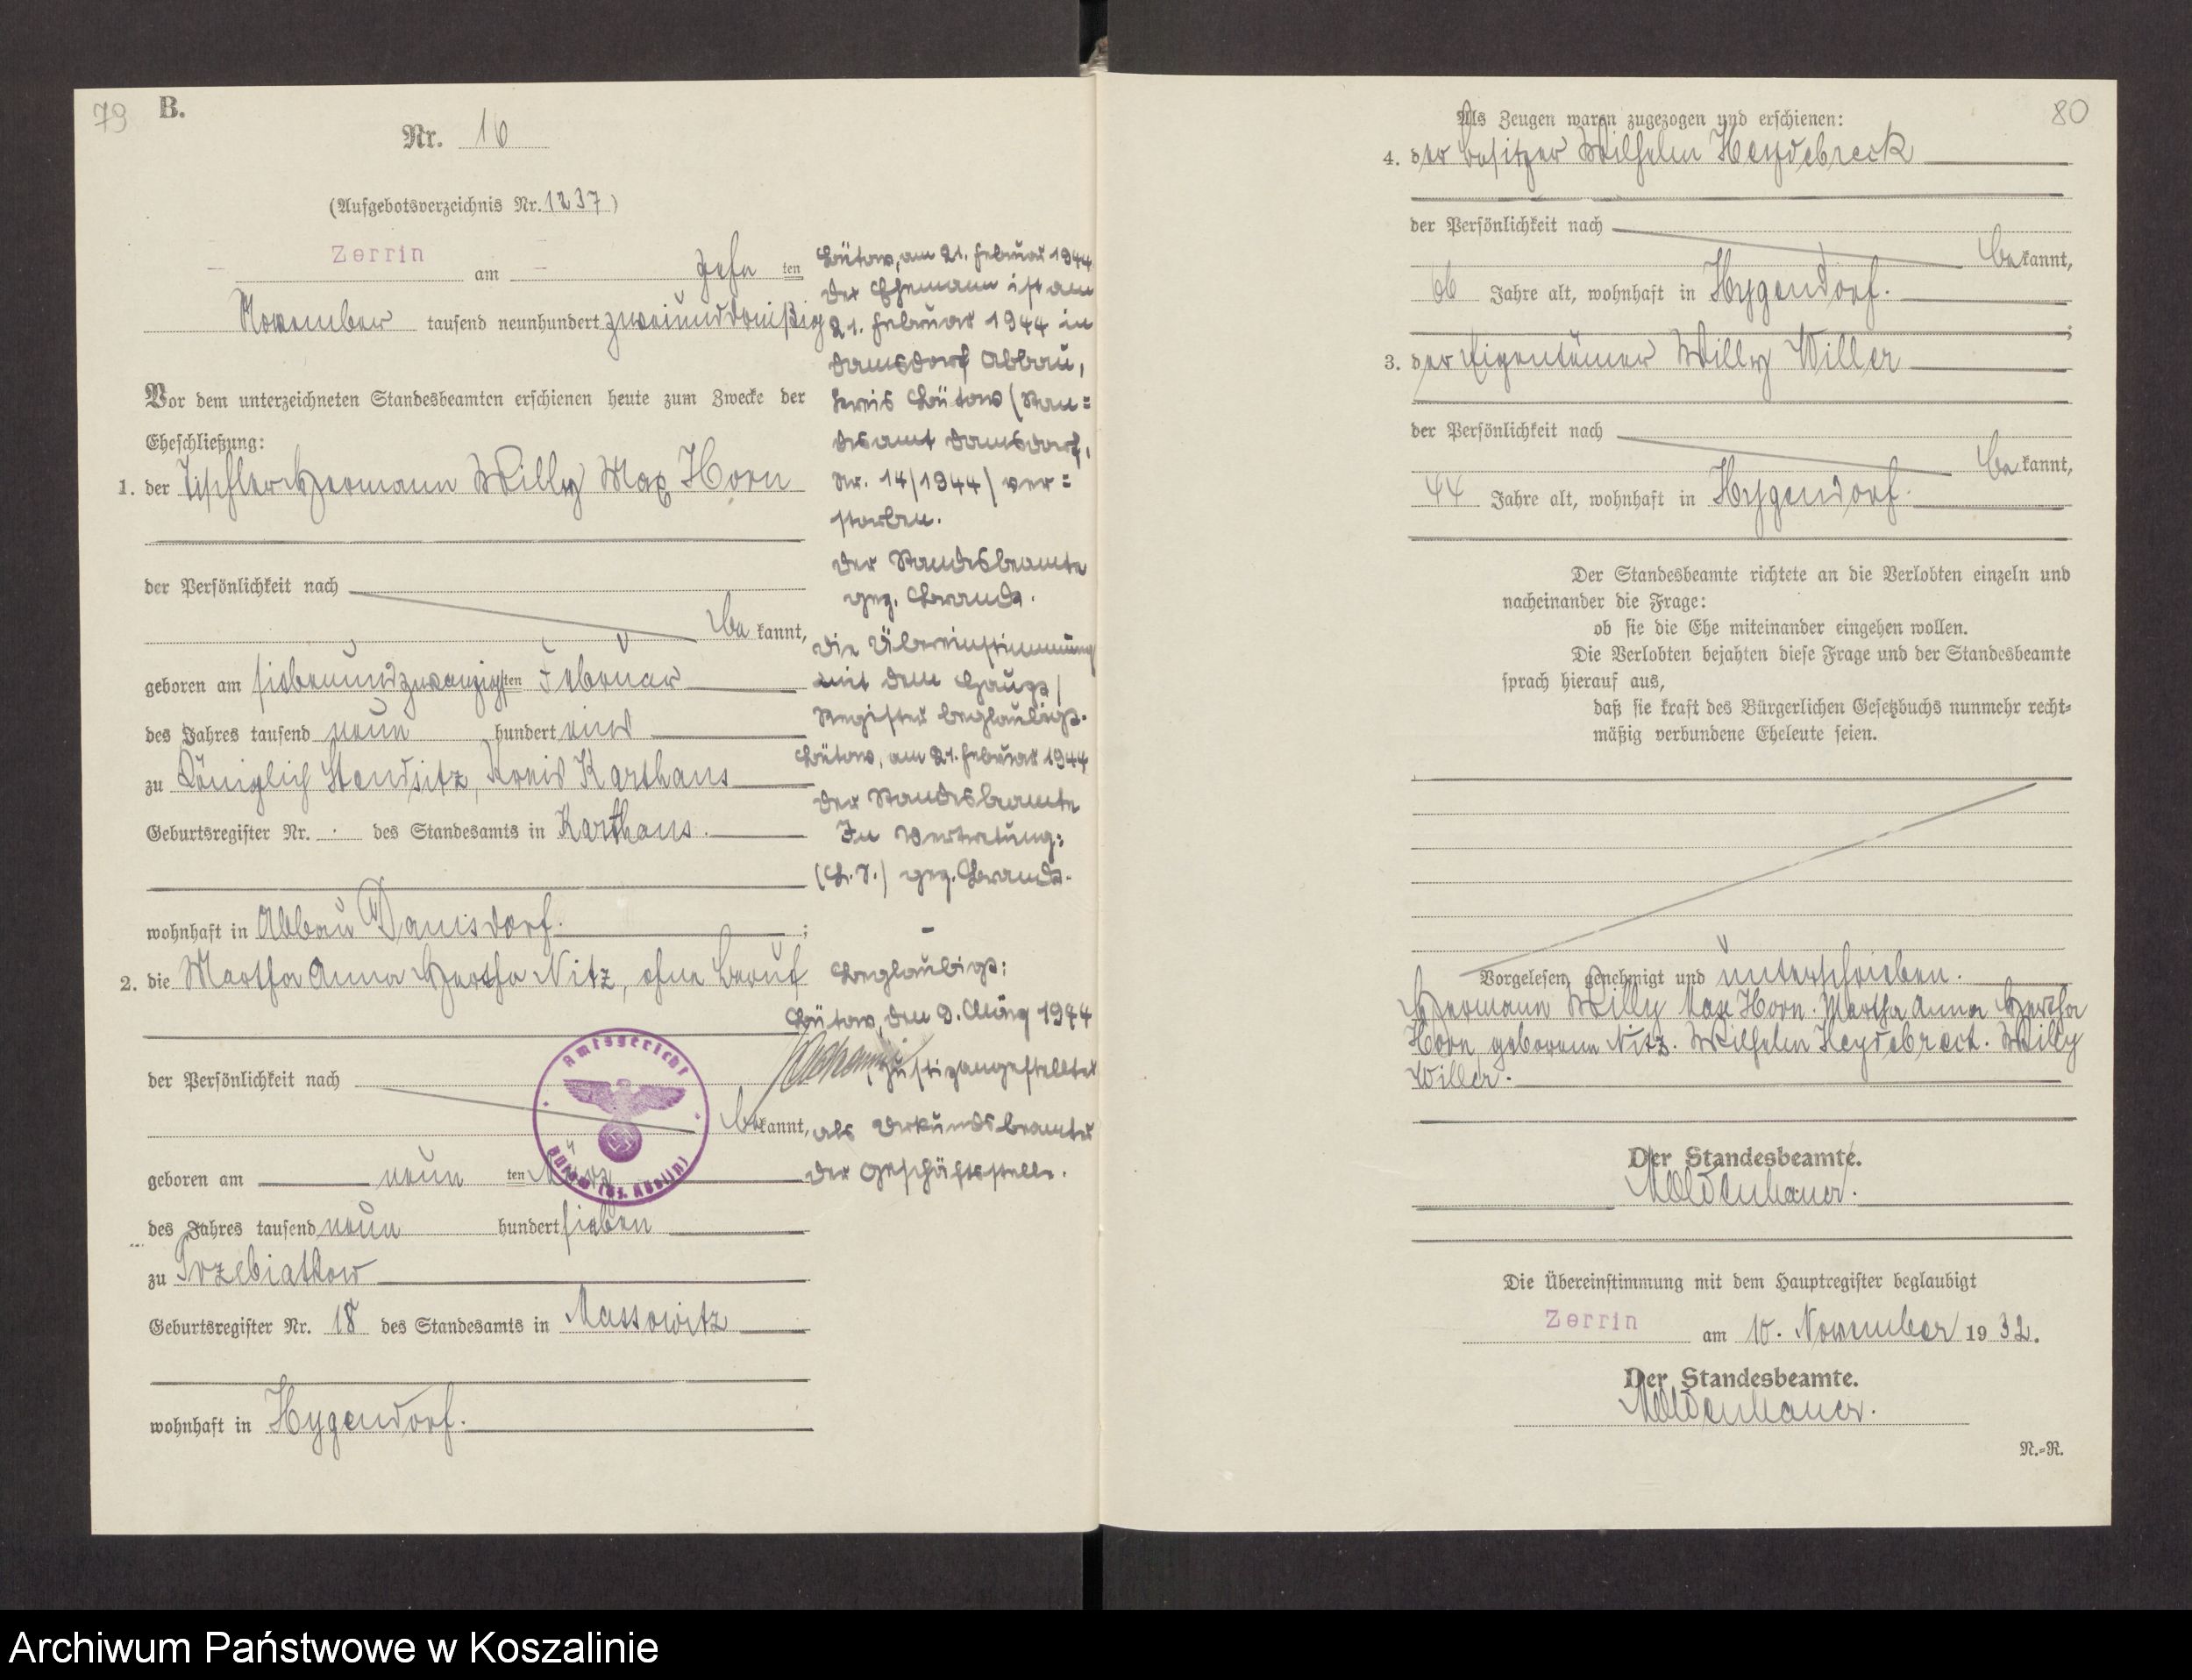 79
B.
Nr. 16
(Aufgebotsverzeichnis Nr. 1237)
Zerrin am zehn ten
November tausend neunhundert zweiunddreißig
Vor dem unterzeichneten Standesbeamten erschienen heute zum Zwecke der
Eheschließung:
1. der Tischler Hermann Willy Max Horn
der Persönlichkeit nach
be kannt,
geboren am siebenundzwanzigsten Februar
des Jahres tausend neun hundert eins
zu Königlich Stendsitz, Kreis Karthaus
Geburtsregister Nr. des Standesamts in Karthaus.
wohnhaft in Abbau Damsdorf. ;
2. die Martha Anna Hertha Nitz, ohne Beruf
der Persönlichkeit nach
be kannt,
geboren am neun ten März
des Jahres tausend neun hundert sieben
zu Trzebiatkow
Geburtsregister Nr. 18 des Standesamts in Massowitz
wohnhaft in Hygendorf.
Bütow, am 21. Februar 1944
Der Ehemann ist am
21. Februar 1944 in
Damsdorf Abbau,
Kreis Bütow (Stan=
desamt Damsdorf,
Nr. 14/1944) ver=
storben.
Der Standesbeamte
gez. Brandt.
Die Übereinstimmung
mit dem Haupt/
Register beglaubigt.
Bütow, am 21. Februar 1944
Der Standesbeamte
In Vertretung:
(L.S.) gez. Brandt.
Beglaubigt:
Bütow, den 9. März 1944
Justizangestellter
als Urkundsbeamter
der Geschäftsstelle.
Amtsgericht
Bütow (Bz. Köslin)
80
Als Zeugen waren zugezogen und erschienen:
4. der Besitzer Wilhelm Heydebreck
der Persönlichkeit nach
be kannt,
66 Jahre alt, wohnhaft in Hygendorf.
;
3. der Eigentümer Willy Willer
der Persönlichkeit nach
be kannt,
44 Jahre alt, wohnhaft in Hygendorf.
Der Standesbeamte richtete an die Verlobten einzeln und
nacheinander die Frage:
ob sie die Ehe miteinander eingehen wollen.
Die Verlobten bejahten diese Frage und der Standesbeamte
sprach hierauf aus,
daß sie kraft des Bürgerlichen Gesetzbuchs nunmehr recht=
mäßig verbundene Eheleute seien.
Vorgelesen, genehmigt und unterschrieben.
Hermann Willy Max Horn. Martha Anna Hertha
Horn, geborene Nitz. Wilhelm Heydebreck. Willy
Willer.
Der Standesbeamte.
Moldenhauer.
Die Übereinstimmung mit dem Hauptregister beglaubigt
Zerrin am 10. November 1932.
Der Standesbeamte.
Moldenhauer.
N.=R.
Archiwum Państwowe w Koszalinie